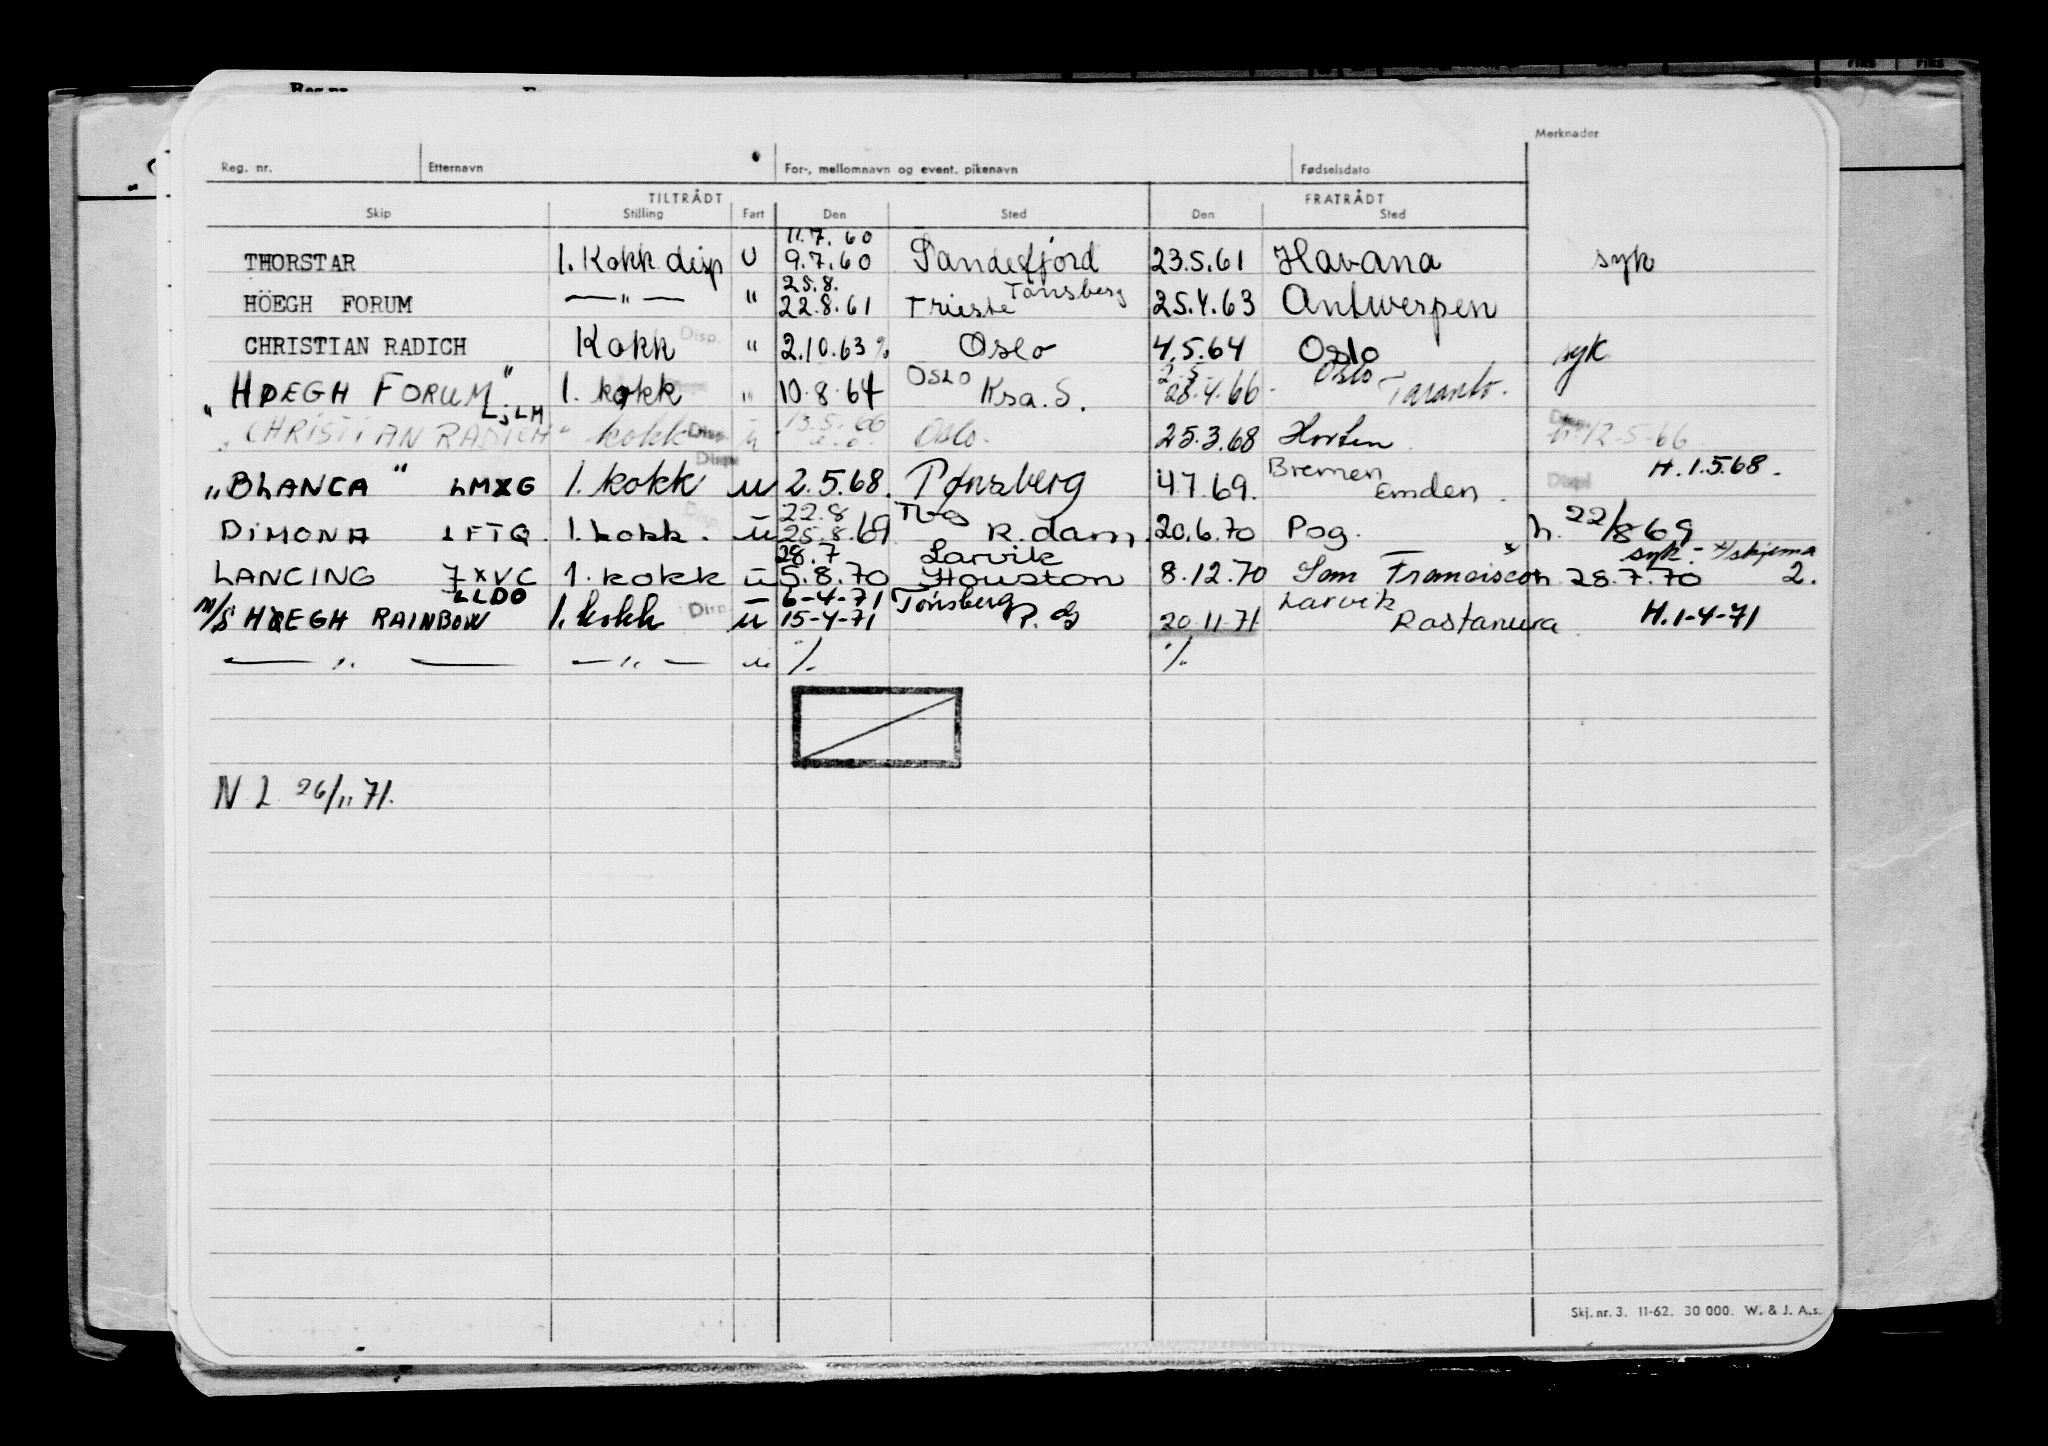 Merknader
Reg. nr. Etternavn For-, mellomnavn og event. pikenavn Fødselsdato
TILTRÅDT FRATRÅDT
Skip Stilling Fart Den Sted Den Sted
11.7.60
THORSTAR 1. Kokk disp U 9.7.60 Sandefjord 23.5.61 Havana syk
25.8. Tønsberg
HÖEGH FORUM —"— " 22.8.61 Trieste 25.4.63 Antwerpen
CHRISTIAN RADICH Kokk Disp. " 2.10.63 % Oslo 4.5.64 Oslo syk
Oslo 2.5. Oslo
"HØEGH FORUM" 1. kokk " 10.8.64 Ksa. S. 28.4.66 Taranto.
LJLM 13.5.66 Disp.
"CHRISTIAN RADICH" kokk Disp. u Oslo. 25.3.68 Horten h. 12-5-66
Disp. Bremen H. 1.5.68.
"BLANCA" LMXG 1. kokk u 2.5.68. Tønsberg 4.7.69. Emden. Disp
Disp. 22.8 Tbg
DIMONA LFTQ. 1. kokk. u 25.8.69 R.dam 20.6.70 Pog. h. 22/8 69
28.7 Larvik syk - */skjema
LANCING JXVC 1. kokk u 5.8.70 Houston 8.12.70 San Francisco h. 28.7.70 2.
LLDO 6-4-71 Tønsberg Larvik
M/S HØEGH RAINBOW 1. kokk Disp. u 15-4-71 P. G 20.11.71 Rastanura H. 1-4-71
—"— —"— u % %
N L 26/11 71.
Skj. nr. 3. 11-62. 30 000. W. & J. A.s.